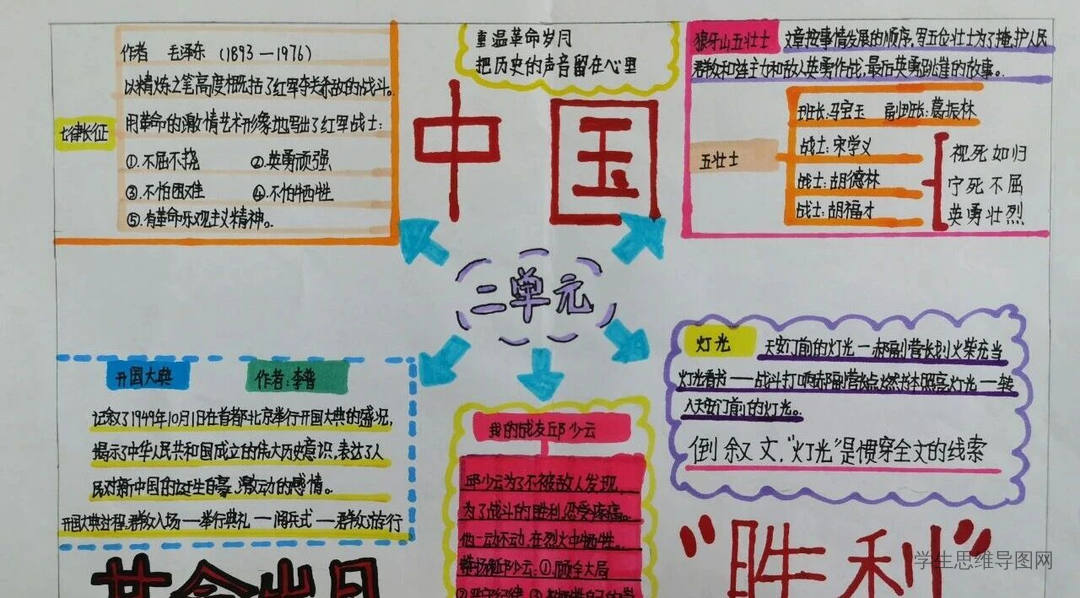 作者 毛泽东（1893—1976）
以精炼之笔高度概括了红军夺关杀敌的战斗。
用革命的激情艺术形象地写出了红军战士：
七律长征
①.不屈不挠 ②.英勇顽强
③.不怕困难 ④.不怕牺牲
⑤.有革命乐观主义精神。
重温革命岁月
把历史的声音留在心里
中国
狼牙山五壮士
文章按事情发展的顺序,写五位壮士为了掩护人民
群众和连主力和敌人英勇作战,最后英勇跳崖的故事。
五壮士
班长:马宝玉 副班长:葛振林
战士:宋学义
战士:胡德林
战士:胡福才
视死如归
宁死不屈
英勇壮烈
二单元
开国大典 作者:李普
记叙了1949年10月1日在首都北京举行开国大典的盛况,
揭示了中华人民共和国成立的伟大历史意识,表达了人
民对新中国的诞生自豪、激动的感情。
开国大典过程:群众入场—举行典礼—阅兵式—群众游行
我的战友邱少云
邱少云为了不被敌人发现,
为了战斗的胜利,忍受疼痛。
他一动不动,在烈火中牺牲。
邱少云:①.顾全大局
灯光
天安门前的灯光—郝副营长划火柴充当
灯光看书——战斗打响郝副营长点燃书本照亮灯光—转
入天安门前的灯光。
倒叙文,“灯光”是惯穿全文的线索
“胜利”
革命岁月
学生思维导图网